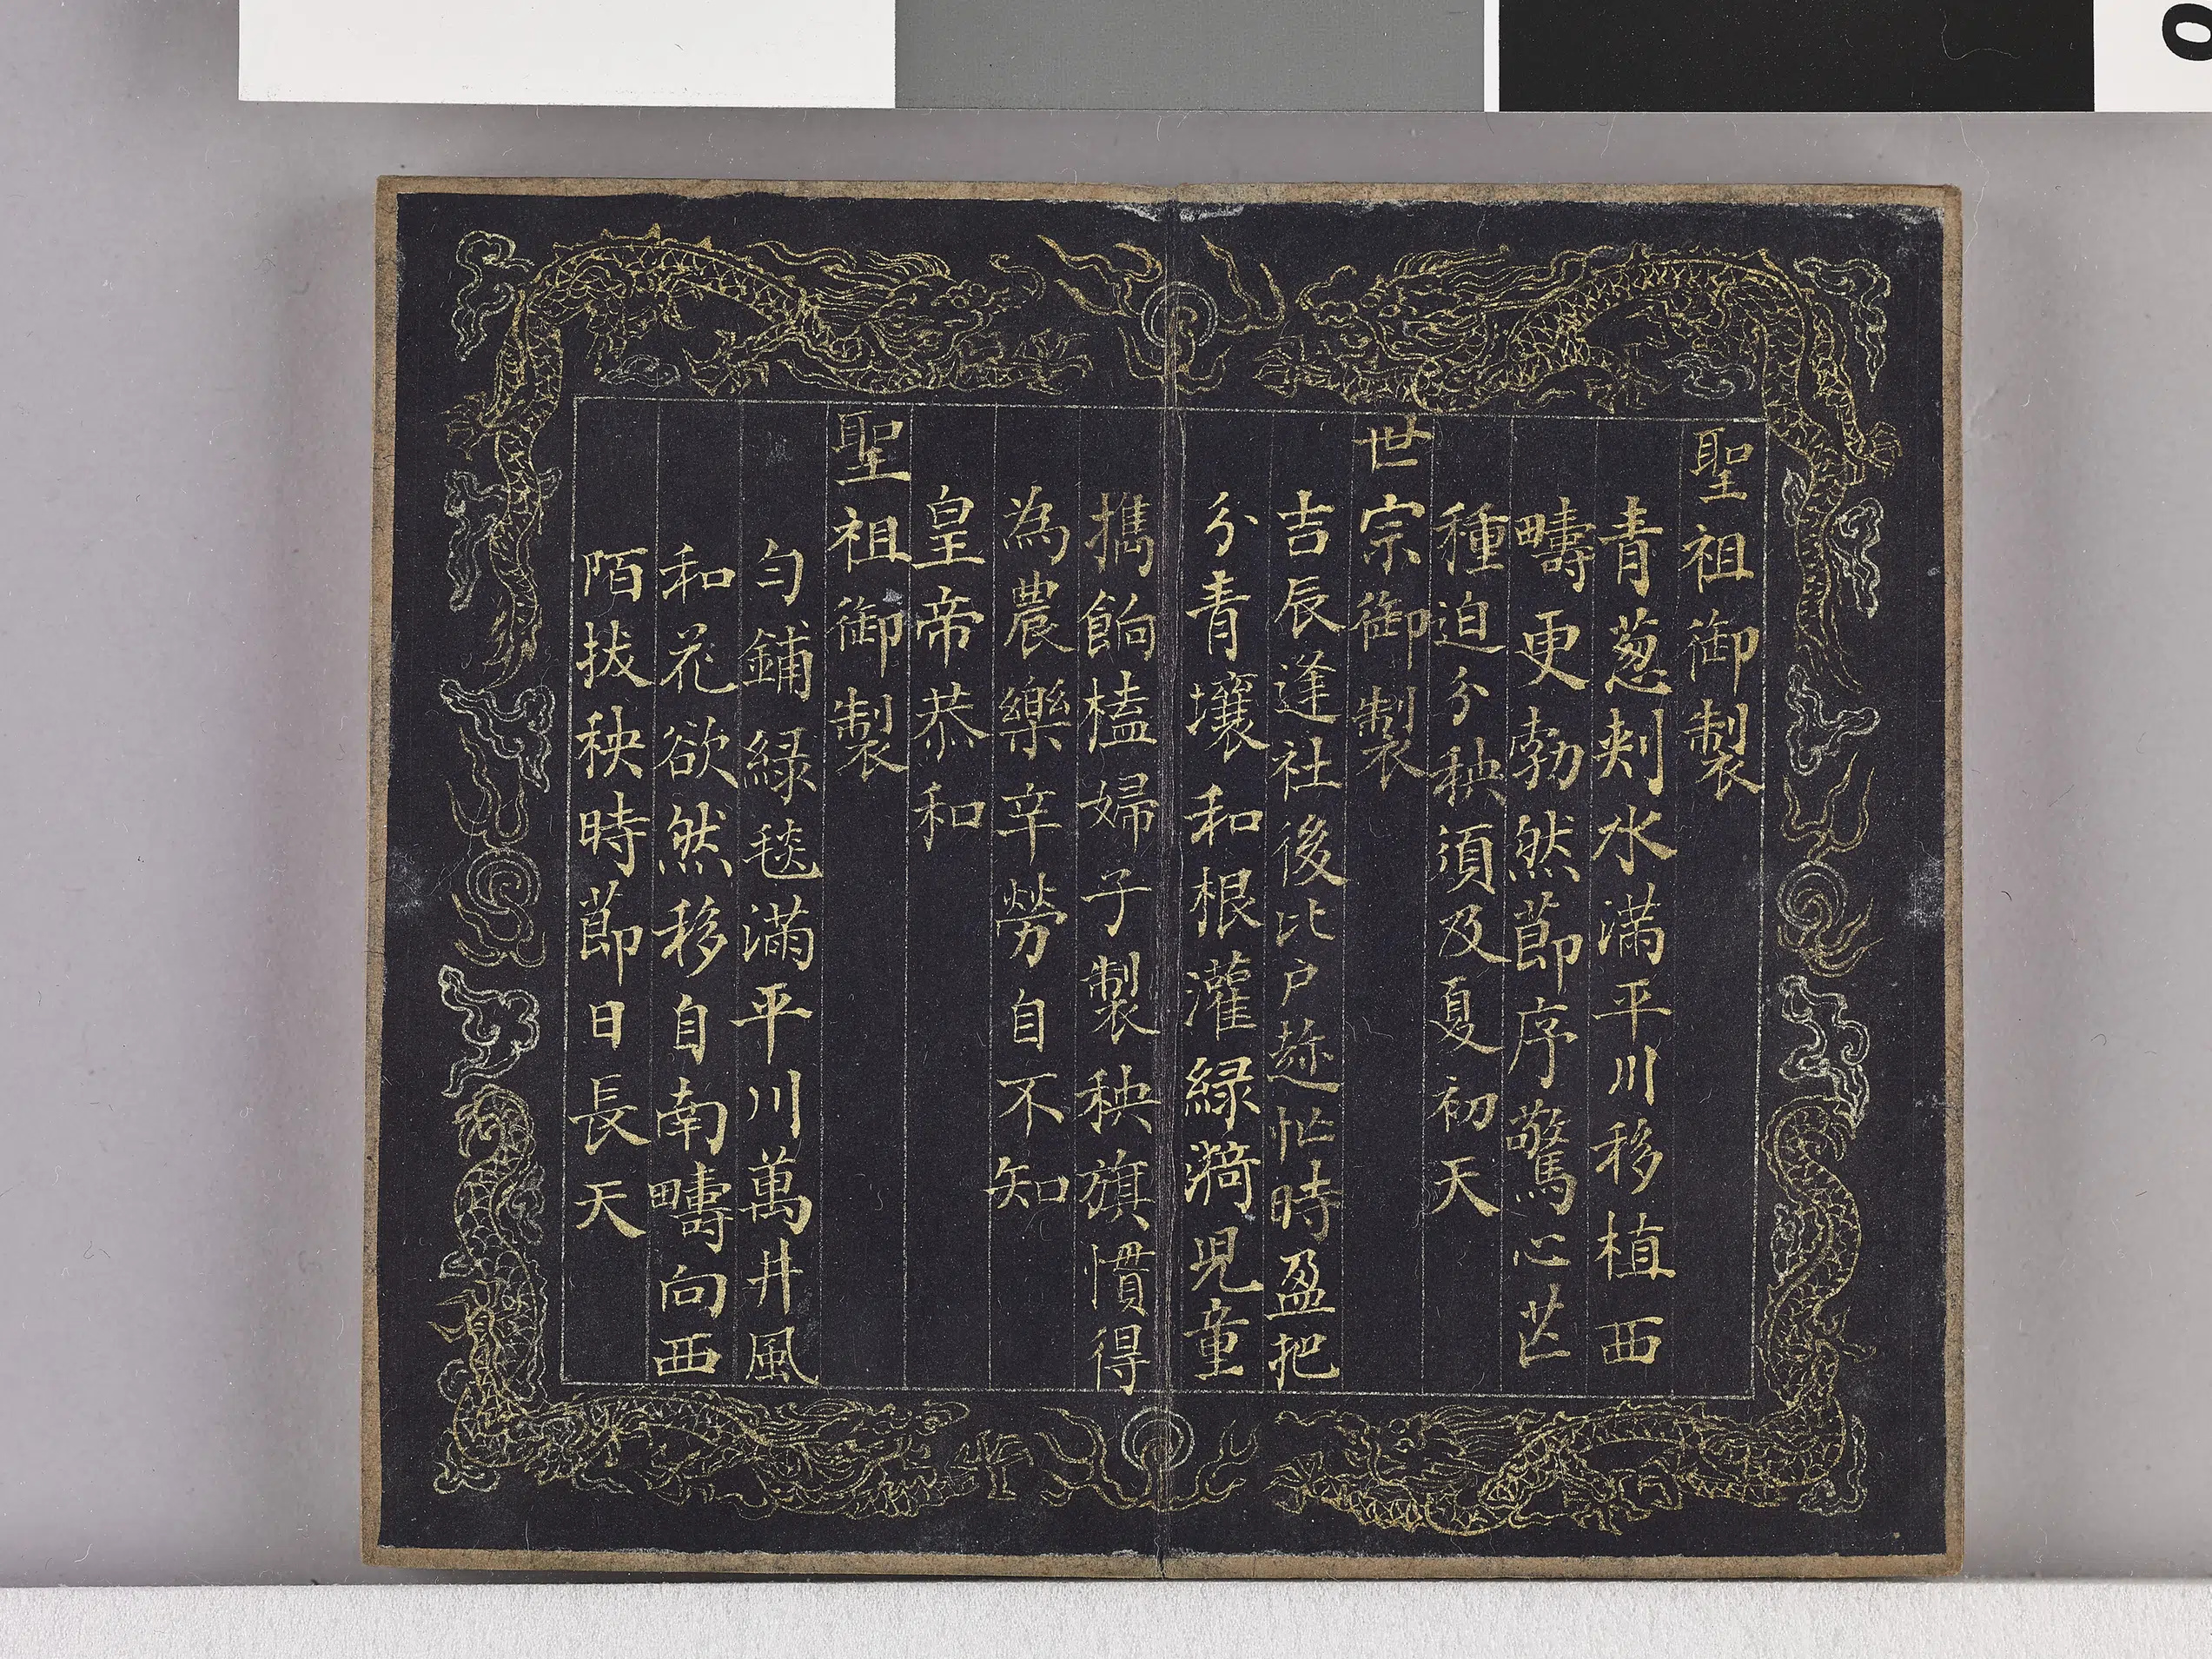 聖祖御製
青葱刾水滿平川移植西
疇更勃然莭序驚心芒
種迫分秧須及夏初天
世宗御製
吉辰逢社後比户趂忙時盈把
分青壤和根灌緑漪児童
擕餉榼婦子製秧旗慣得
為農樂辛勞自不知
皇帝恭和
聖祖御製
匀鋪緑毯滿平川萬井風
和花欲然移自南疇向西
陌拔秧時莭日長天
0